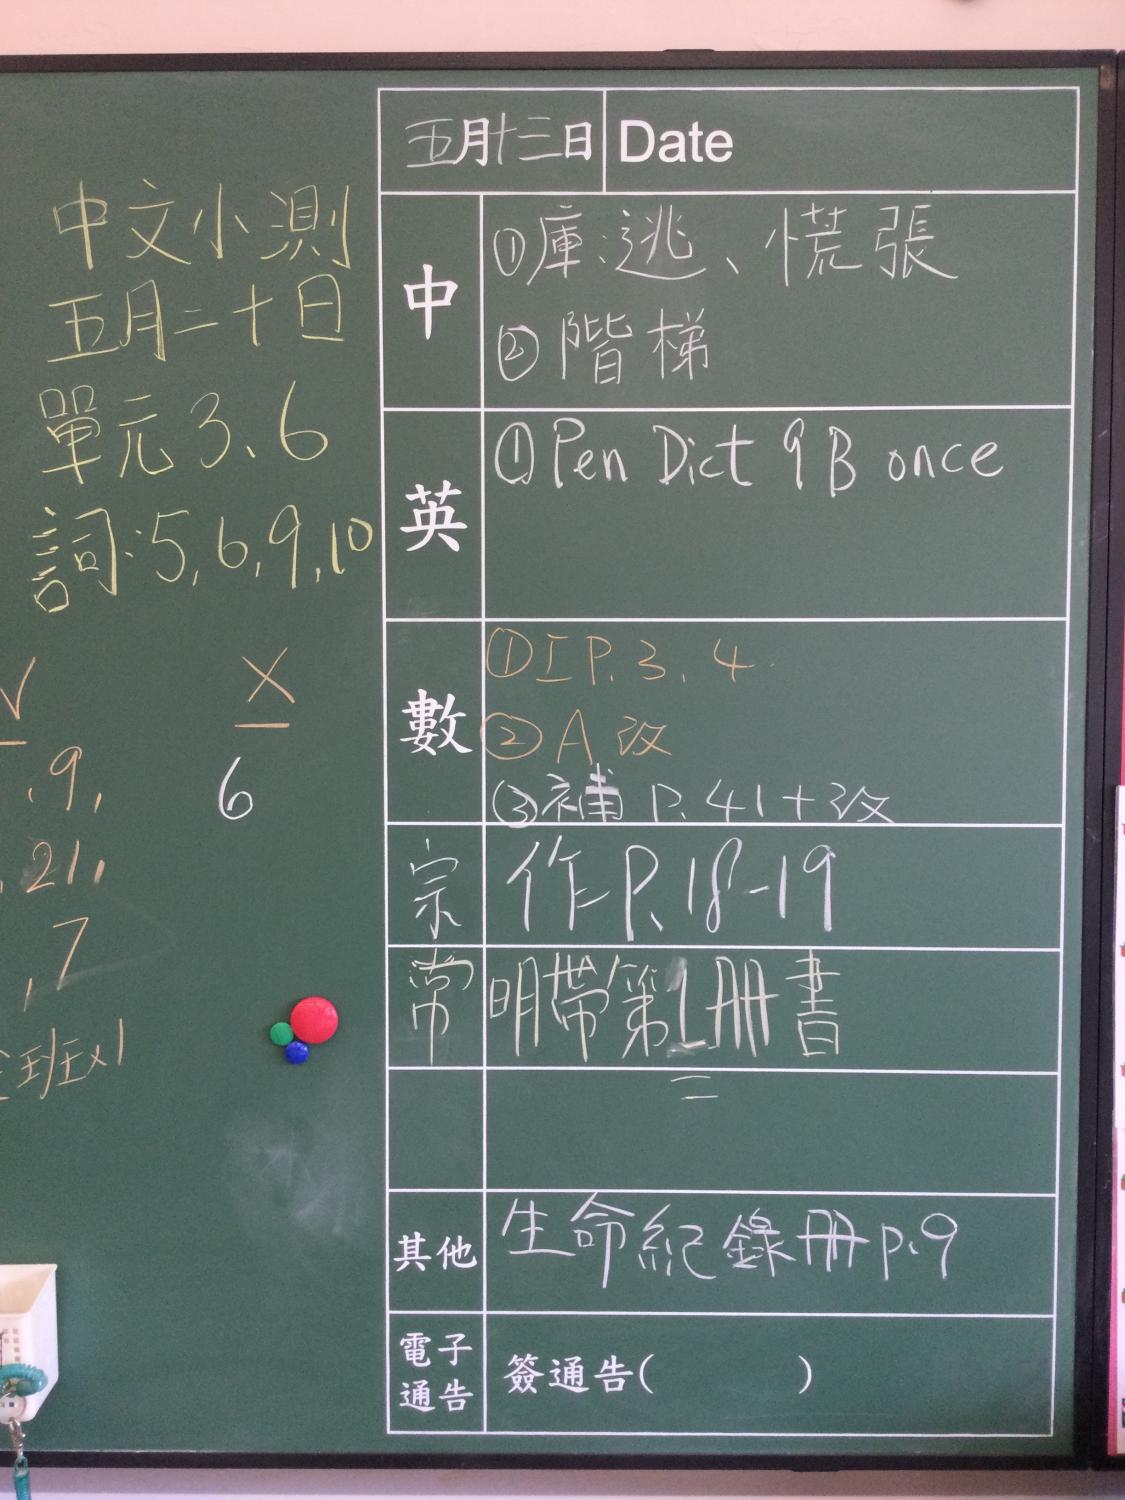 五月十三日 Date
中文小測
五月二十日
單元3、6
詞:5,6,9,10
中
①庫:逃、慌張
②階梯
英
①Pen Dict 9B once
數
①I P.3、4
②A改
③補 P.41+改
宗 作P.18-19
常 明帶第1冊書
其他 生命紀錄冊p.9
電子
通告
簽通告( )
√ X
,9, 6
,21,
,7
班x1